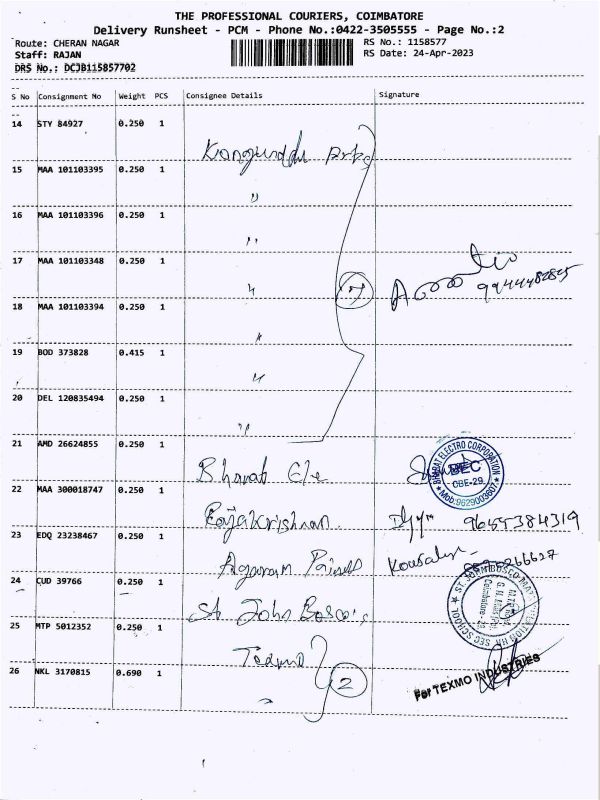 THE PROFESSIONAL COURIERS, COIMBATORE
Delivery Runsheet - PCM - Phone No.:0422-3505555 - Page No.:2
Route: CHERAN NAGAR
RS No.: 1158577
Staff: RAJAN
RS Date: 24-Apr-2023
DRS No.: DCJB115857702
S No Consignment No Weight PCS Consignee Details Signature
14 STY 84927 0.250 1
15 MAA 101103395 0.250 1 "
16 MAA 101103396 0.250 1 "
17 MAA 101103348 0.250 1 "
7
18 MAA 101103394 0.250 1 "
19 BOD 373828 0.415 1 "
20 DEL 120835494 0.250 1 "
21 AMD 26624855 0.250 1 Bharat Ele
BHARAT ELECTRO CORPORATION
BEC
CBE-29
Mob:9629003607
22 MAA 300018747 0.250 1 Rajakrishnan 9659384319
23 EDQ 23238467 0.250 1 Agaram Kousalya
24 CUD 39766 0.250 1 St John Bosco's
25 MTP 5012352 0.250 1 Texmo
26 NKL 3170815 0.690 1 "
2
For TEXMO INDUSTRIES